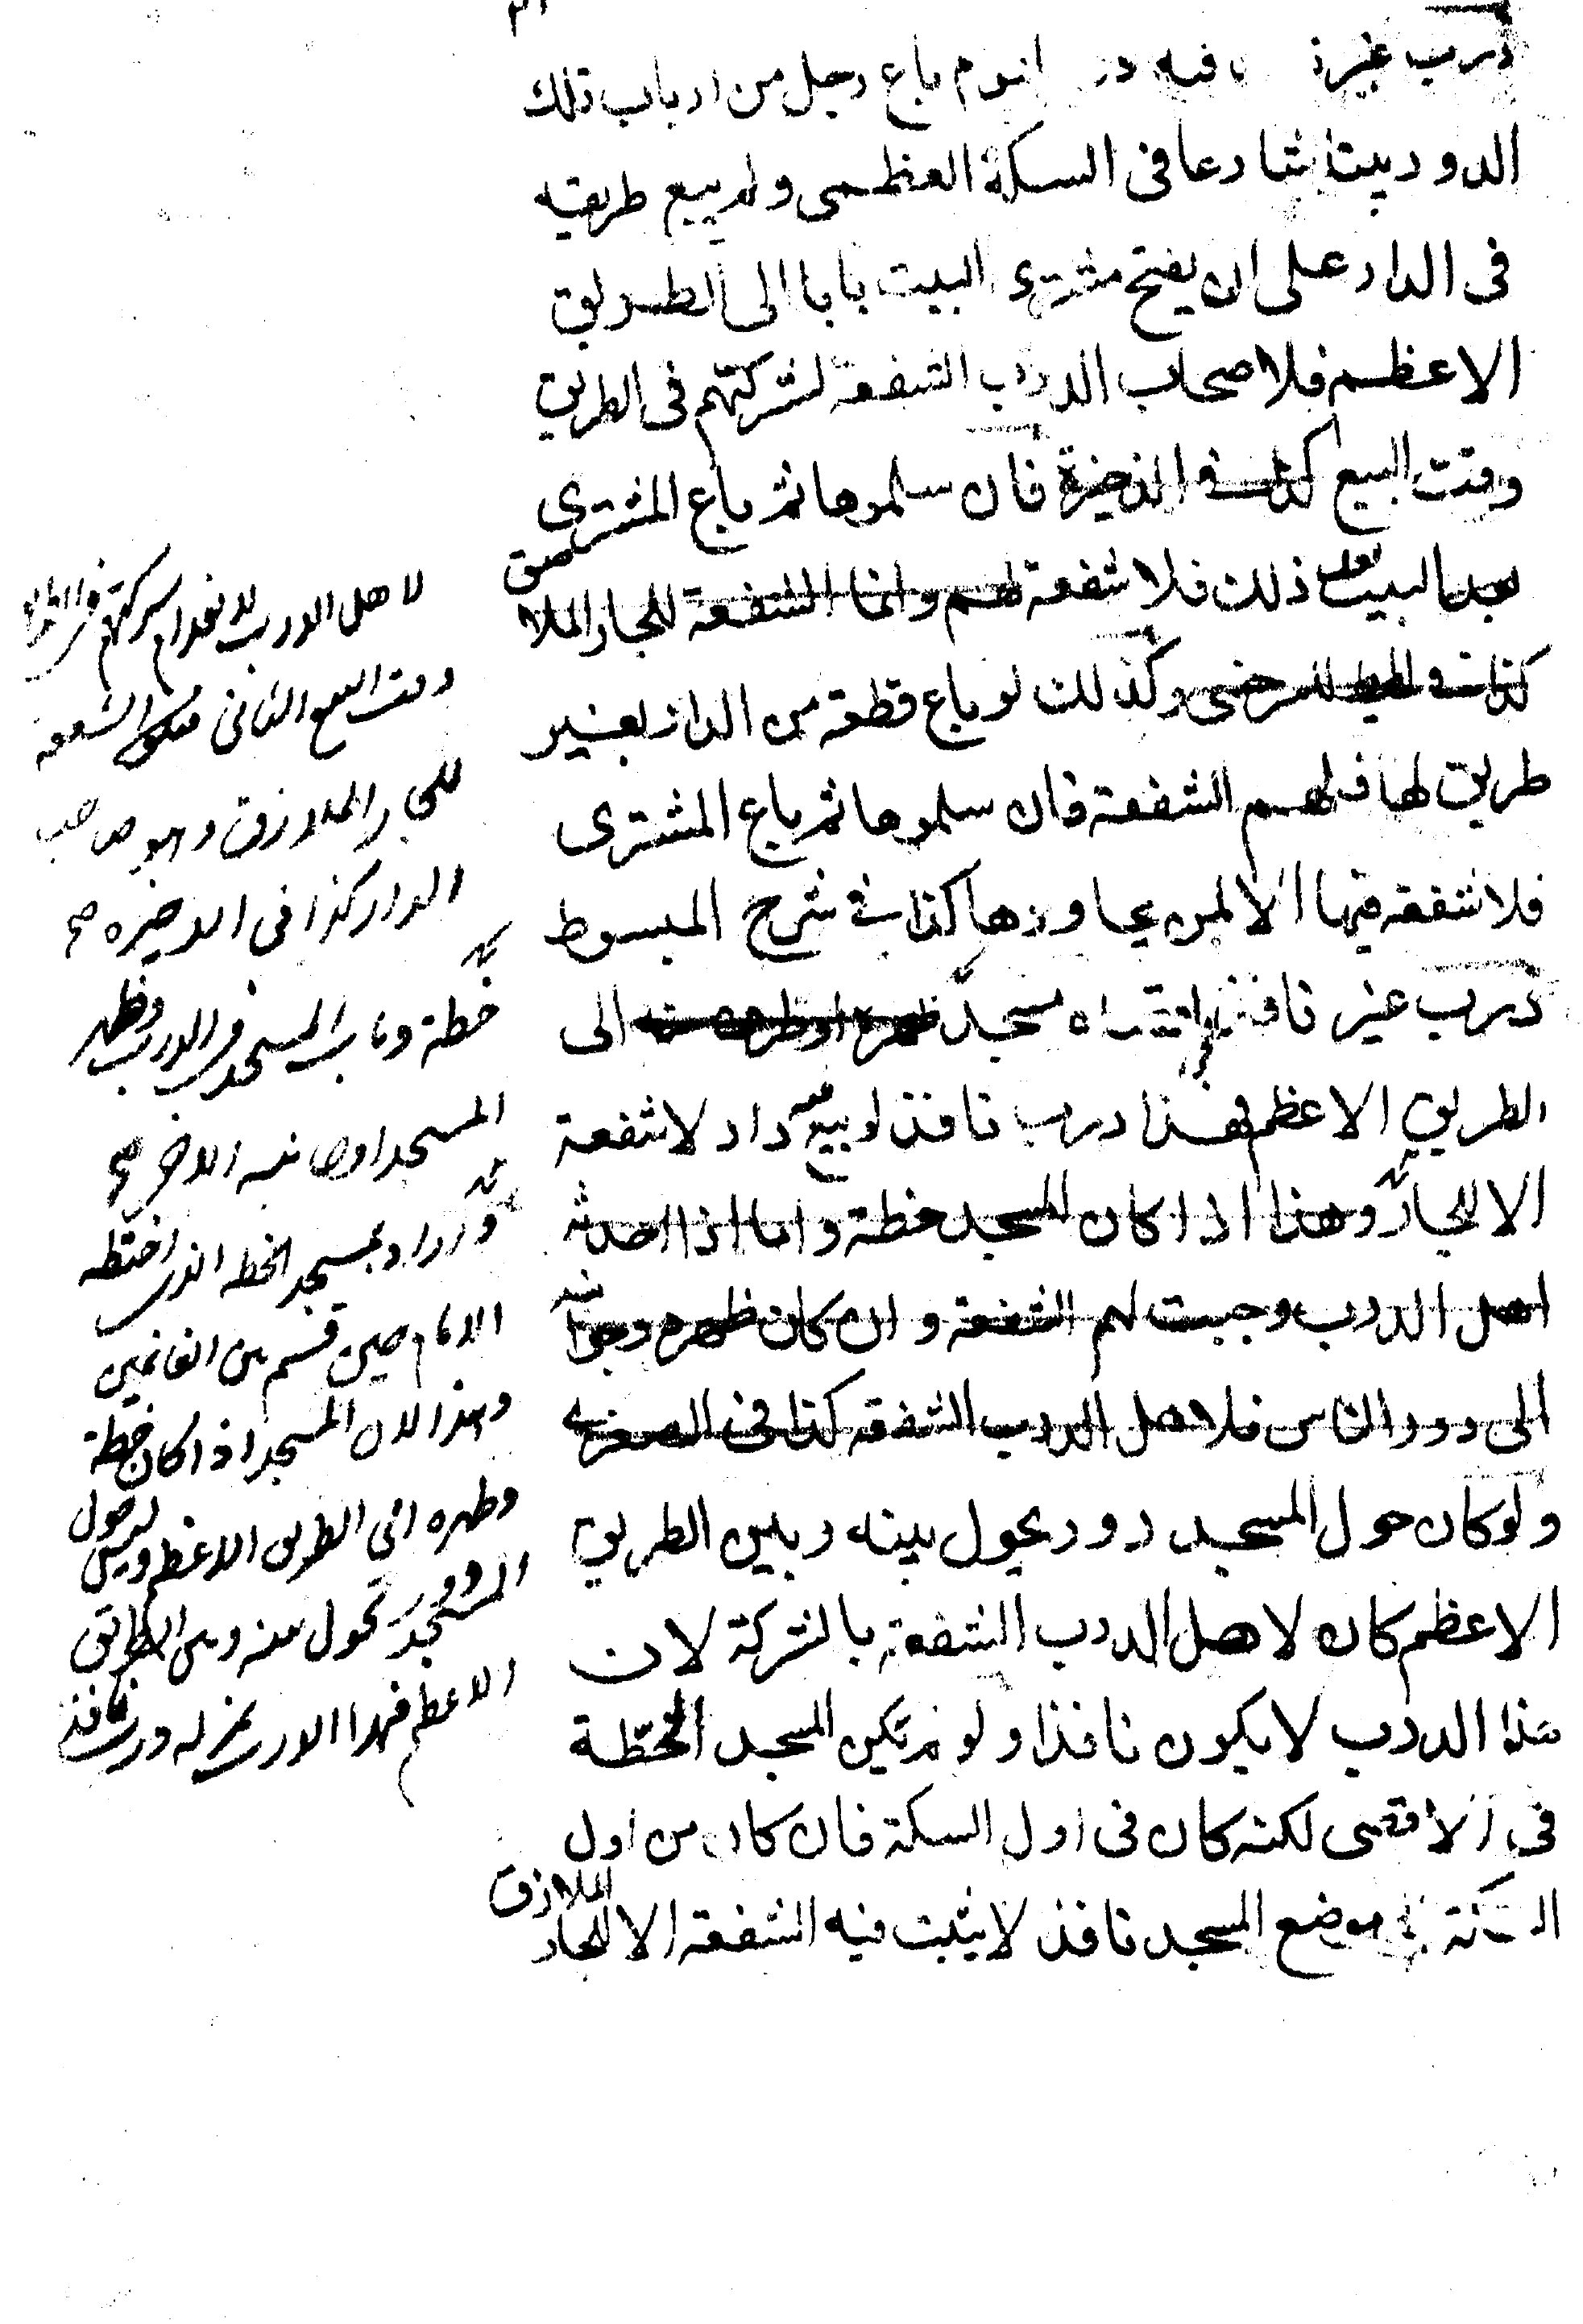 درب غير فيه دور لقوم باع رجل من ارباب تلك
الدور بيتا شارعا في السكة العظمى ولم يبع طريقه
في الدار على ان يفتح مشترى البيت بابا الى الطريق
الاعظم فلاصحاب الدرب الشفعة لشركتهم في الطريق
وقت البيع كذا في الذخيرة فان سلموها ثم باع المشترى
البيت بعد ذلك فلا شفعة لهم وانما الشفعة للجار الملاصق
كذا في المحيط للسرخسى وكذلك لو باع قطعة من الدار بغير
طريق لها فلهم الشفعة فان سلموها ثم باع المشترى
فلا شفعة فيها الا لمن يجاورها كذا في شرح المبسوط
درب غير نافذ اقصاه مسجد الى
الطريق الاعظم فهذا درب نافذ لو بيع فيه دار لا شفعة
الا للجار وهذا اذا كان المسجد خطة واما اذا احدثه
اهل الدرب وجبت لهم الشفعة وان كان ظهره وجوانبه
الى دور الناس فلاهل الدرب الشفعة كذا في الصغرى
ولو كان حول المسجد دور يحول بينه وبين الطريق
الاعظم كان لاهل الدرب الشفعة بالشركة لان
هذا الدرب لا يكون نافذا ولو لم يكن المسجد الخطة
في الاقصى لكنه كان في اول السكة فان كان من اول
السكة الى موضع المسجد نافذ لا يثبت فيه الشفعة الا للجار
الملازق
لاهل الدرب لانعدام شركتهم في الطريق
وقت البيع الثانى فيكون الشفعة
للجار الملازق وهو صاحب
الدار كذا في الذخيرة صح
خطة وباب المسجد في الدرب وظهر
المسجد او جانبه الاخر صح
واراد بمسجد الخطة الذى اختطه
الامام حين قسم بين الغانمين
وهذا لان المسجد اذا كان خطة
وظهره الى الطريق الاعظم وليس حول
المسجد دور تحول بينه وبين الطريق
الاعظم فهذا الدرب بمنزلة درب نافذ